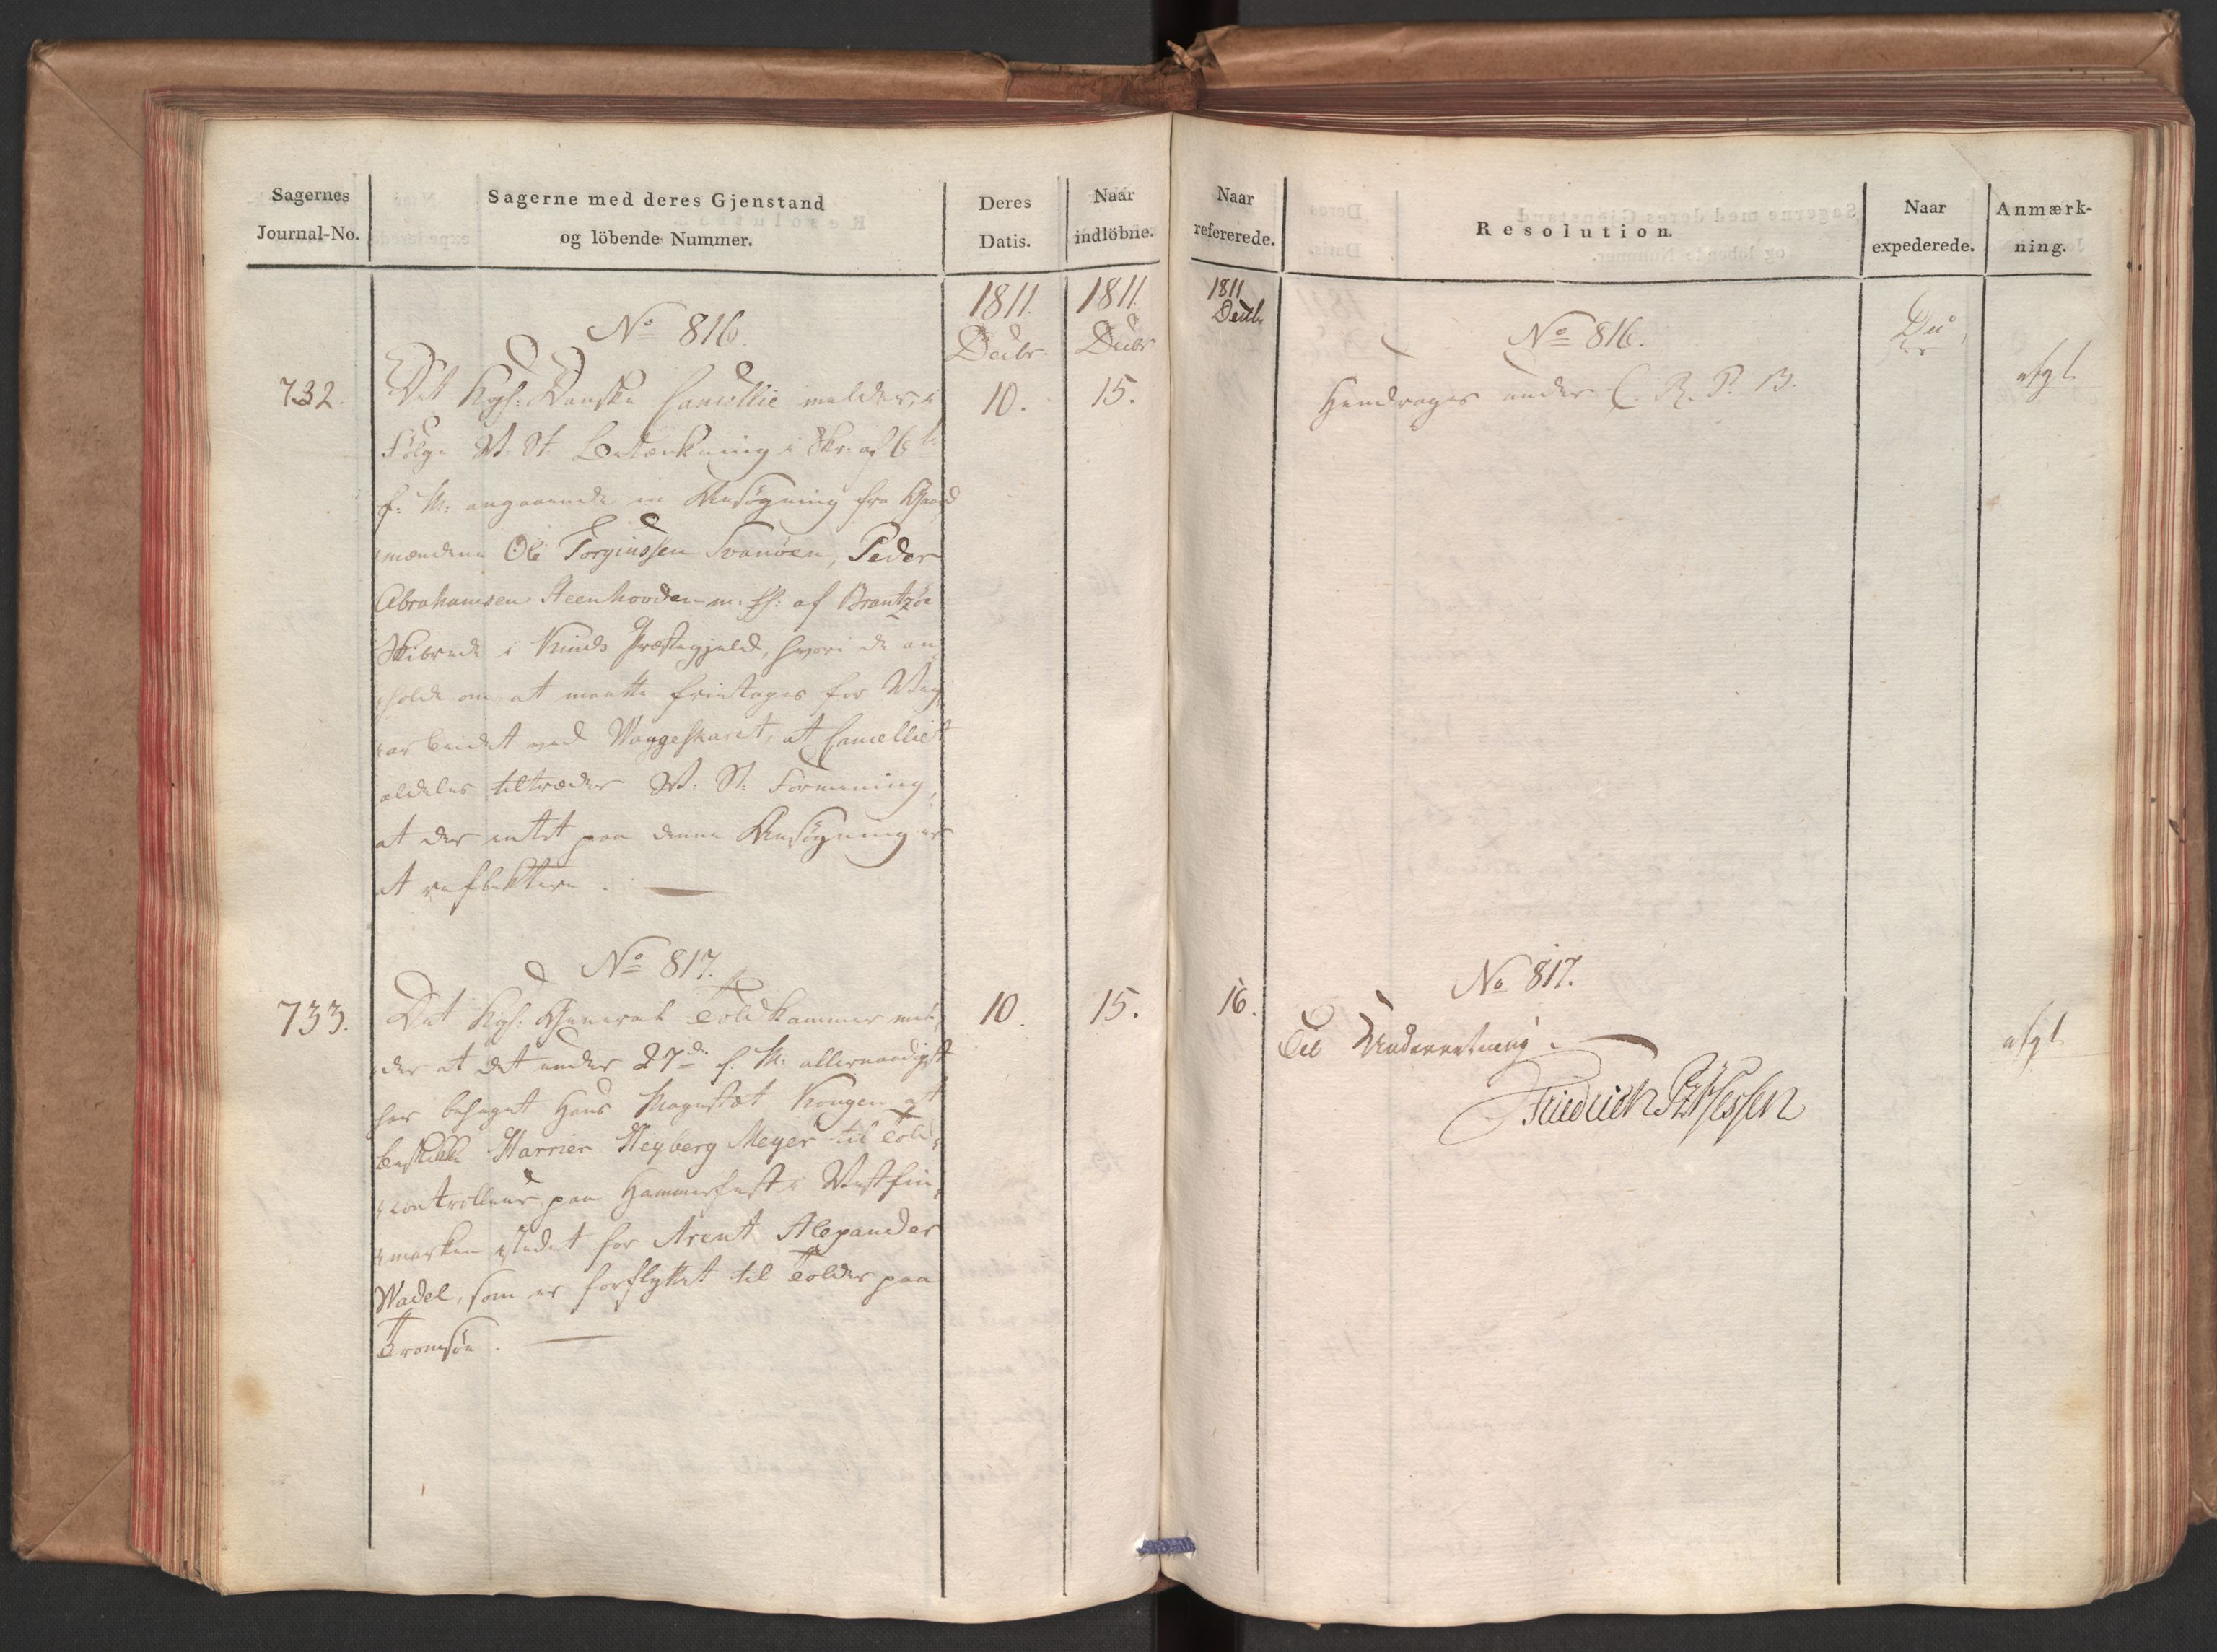 Sagernes
Journal-No.
Sagerne med deres Gjenstand
og löbende Nummer.
Deres
Datis.
Naar
indlöbne.
1811
Decbr
1811
Decbr
No 816.
732.
Det Kgl: Danske Cancellie melder, i
10.
15.
Følge V. St. Betænkning i Skr. af 6te
f: M: angaaende en Ansøgning fra Gaard
mændene Ole Torginssen Svanöen, Peder
Abrahamsen Steenhovden m: fl: af Brantzöe
Skibrede i Kinds Præstegjeld, hvori de an
holde om at maatte fritages for Vey
arbeidet ved Vangeskaret, at Cancelliet
aldeles tiltræder V. St. Formening,
at der intet paa denne Ansøgning er
at reflektere.
No 817.
733.
Det Kgl. General Toldkammer mel
10.
15.
der at det under 27de f. M. allernaadigst
har behaget Hans Majestæt Kongen at
beskikke Harrier Heyberg Meyer til Told
controlleur paa Hammerfest i Vestfin
marken istedet for Arent Alexander
Wadel, som er forflyttet til Tolder paa
Tromsöe.
Naar
refererede.
Resolution.
Naar
expederede.
Anmærk-
ning.
1811
Decbr
No 816.
afgt
Hendrages under C. R. P. B.
No 817.
16.
Til Underretning.
afgt
Friedrich